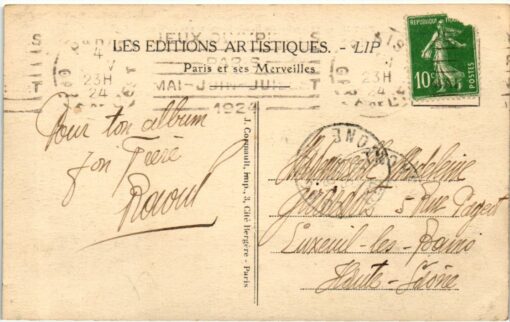 JEUX OLYMPIQUES
PARIS
MAI-JUIN-JUILLET
1924
4
23H
24
23H
24
REPUBLIQUE FRANÇAISE
10c
POSTES
LES EDITIONS ARTISTIQUES. - LIP
Paris et ses Merveilles
Pour ton album
Ton Frère
Raoul
J. Cornault, imp., 3, Cité Bergère - Paris
Mademoiselle Madeleine
5 Rue
Luxeuil-les-Bains
Haute-Saône